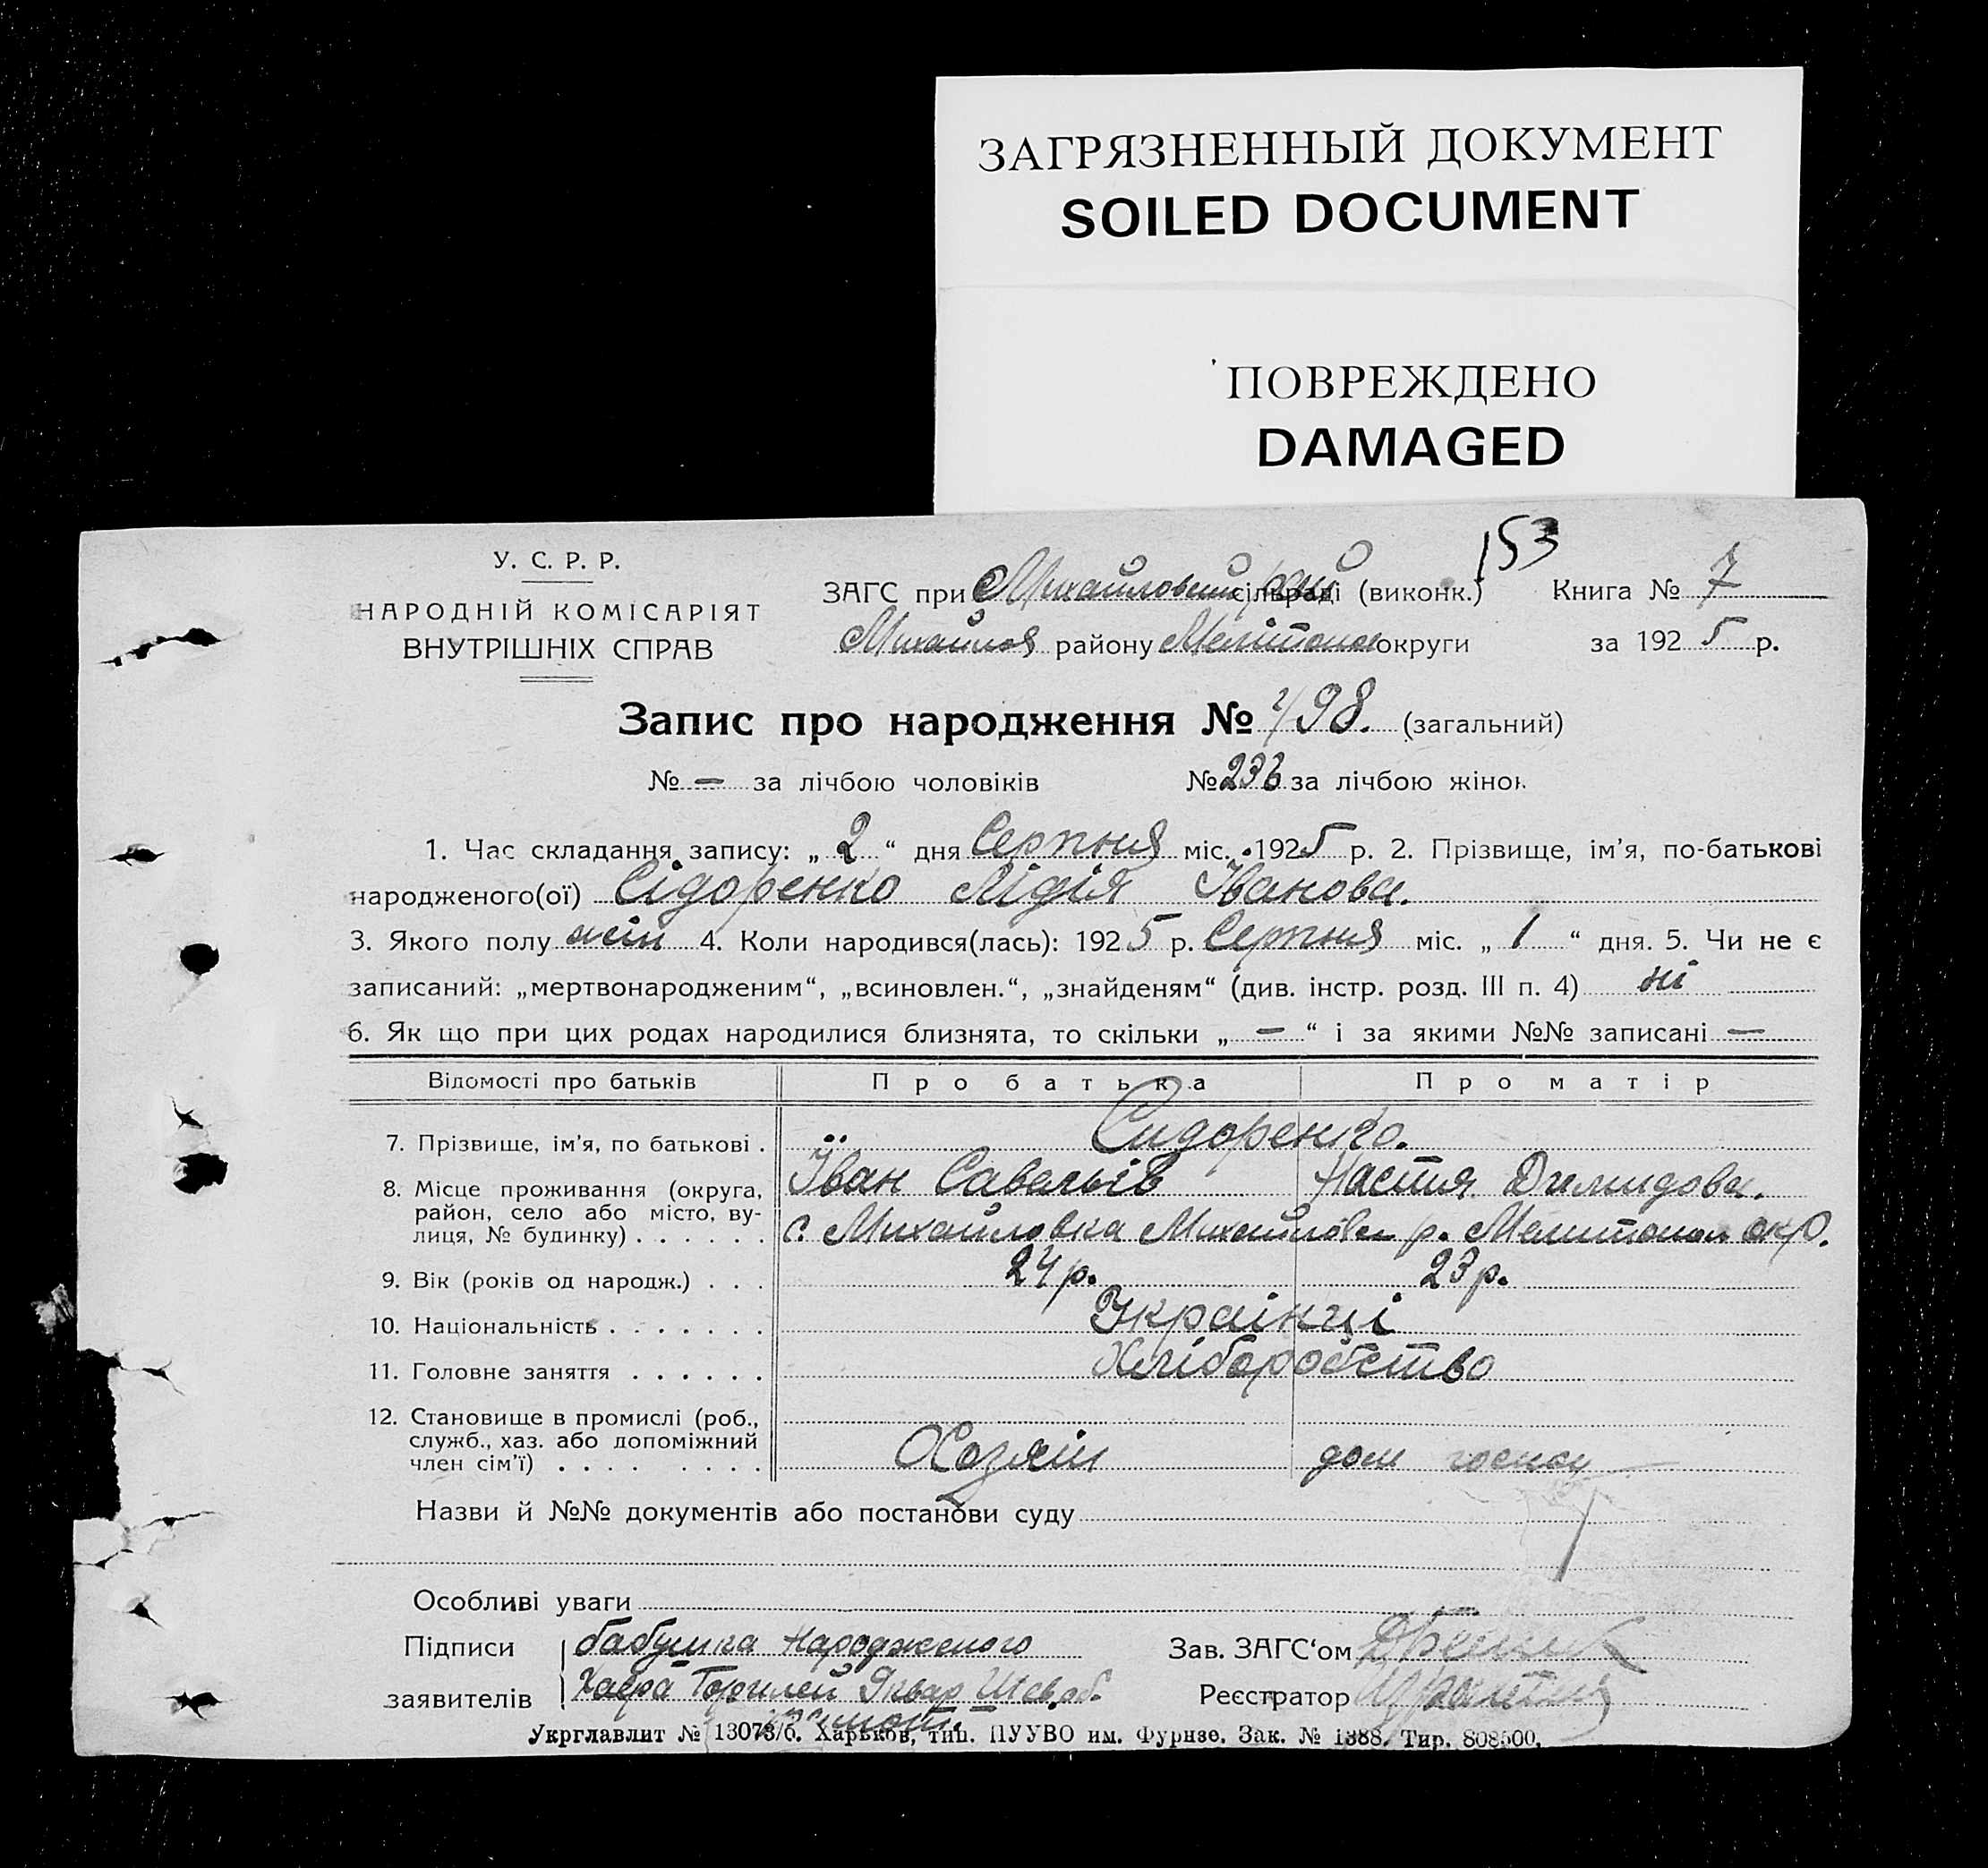 ЗАГРЯЗНЕННЫЙ ДОКУМЕНТ
SOILED DOCUMENT
ПОВРЕЖДЕНО
DAMAGED
153
У. С. Р. Р.
НАРОДНІЙ КОМІСАРІЯТ
ВНУТРІШНІХ СПРАВ
ЗАГС при сільраді (виконк.) Книга № 7
Михайлов району Мелітопол округи за 1925 р.
Запис про народження № 498. (загальний)
№ — за лічбою чоловіків № 236 за лічбою жінок
1. Час складання запису: „ 2 “ дня Серпня міс. 1925 р. 2. Прізвище, ім’я, по-батькові
народженого(ої) Сідоренко Лідія Іванова.
3. Якого полу жін 4. Коли народився(лась): 1925 р. Серпня міс. „ 1 “ дня. 5. Чи не є
записаний: „мертвонародженим“, „всиновлен.“, „знайденям“ (див. інстр. розд. III п. 4) ні
6. Як що при цих родах народилися близнята, то скільки „ — “ і за якими №№ записані —
Відомості про батьків Про батька Про матір
7. Прізвище, ім’я, по батькові . Сидоренко.
Іван Савельїв Настя Димидова.
8. Місце проживання (округа, район, село або місто, вулиця, № будинку) . . . . . . с. Михайловка Михайлов р. Мелитопол окр.
9. Вік (років од народж.) . . . 24 р. 23 р.
10. Національність . . . . . . . Українці
11. Головне заняття . . . . . . Хліборобство
12. Становище в промислі (роб., служб., хаз. або допоміжний член сім’ї) . . . . . . . . Хозяїн дом
Назви й №№ документів або постанови суду
Особливі уваги
Підписи бабушка Народженого Зав. ЗАГС‘ом
заявителів Реєстратор
Укрглавлит № 13073/б. Харьков, тип. ПУУВО им. Фурнзе. Зак. № 1388. Тир. 808500.